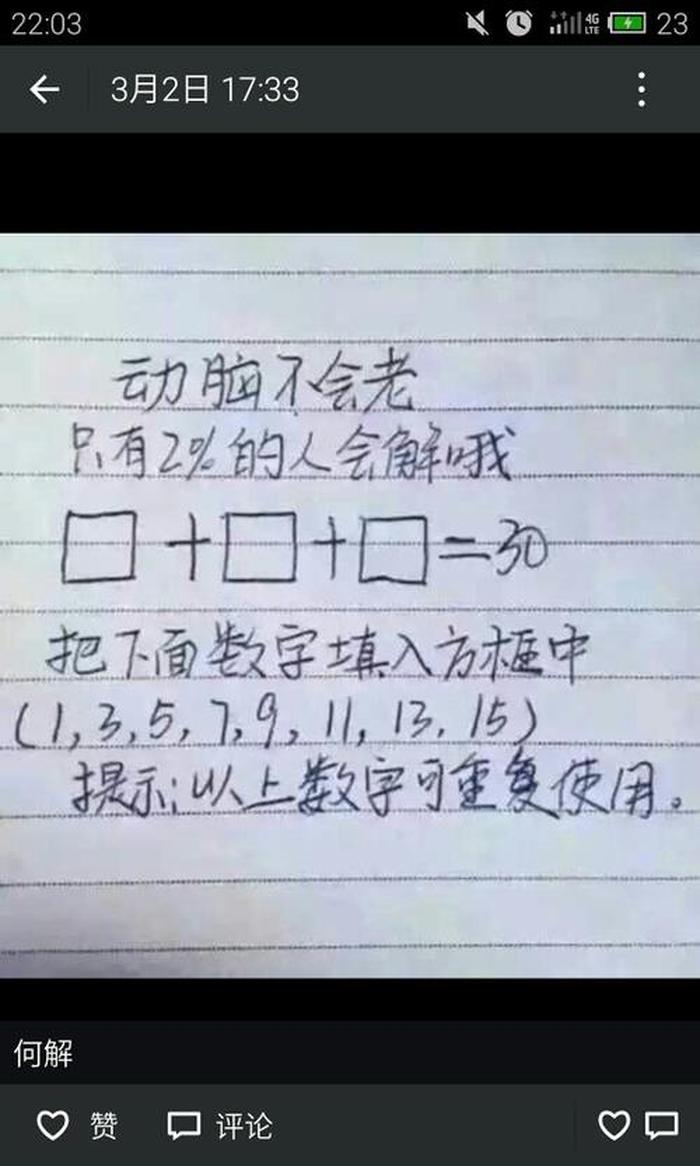 22:03
4G
LTE
23
3月2日 17:33
动脑不会老
只有2%的人会解哦
□+□+□=30
把下面数字填入方框中
(1,3,5,7,9,11,13,15)
提示:以上数字可重复使用。
何解
赞 评论